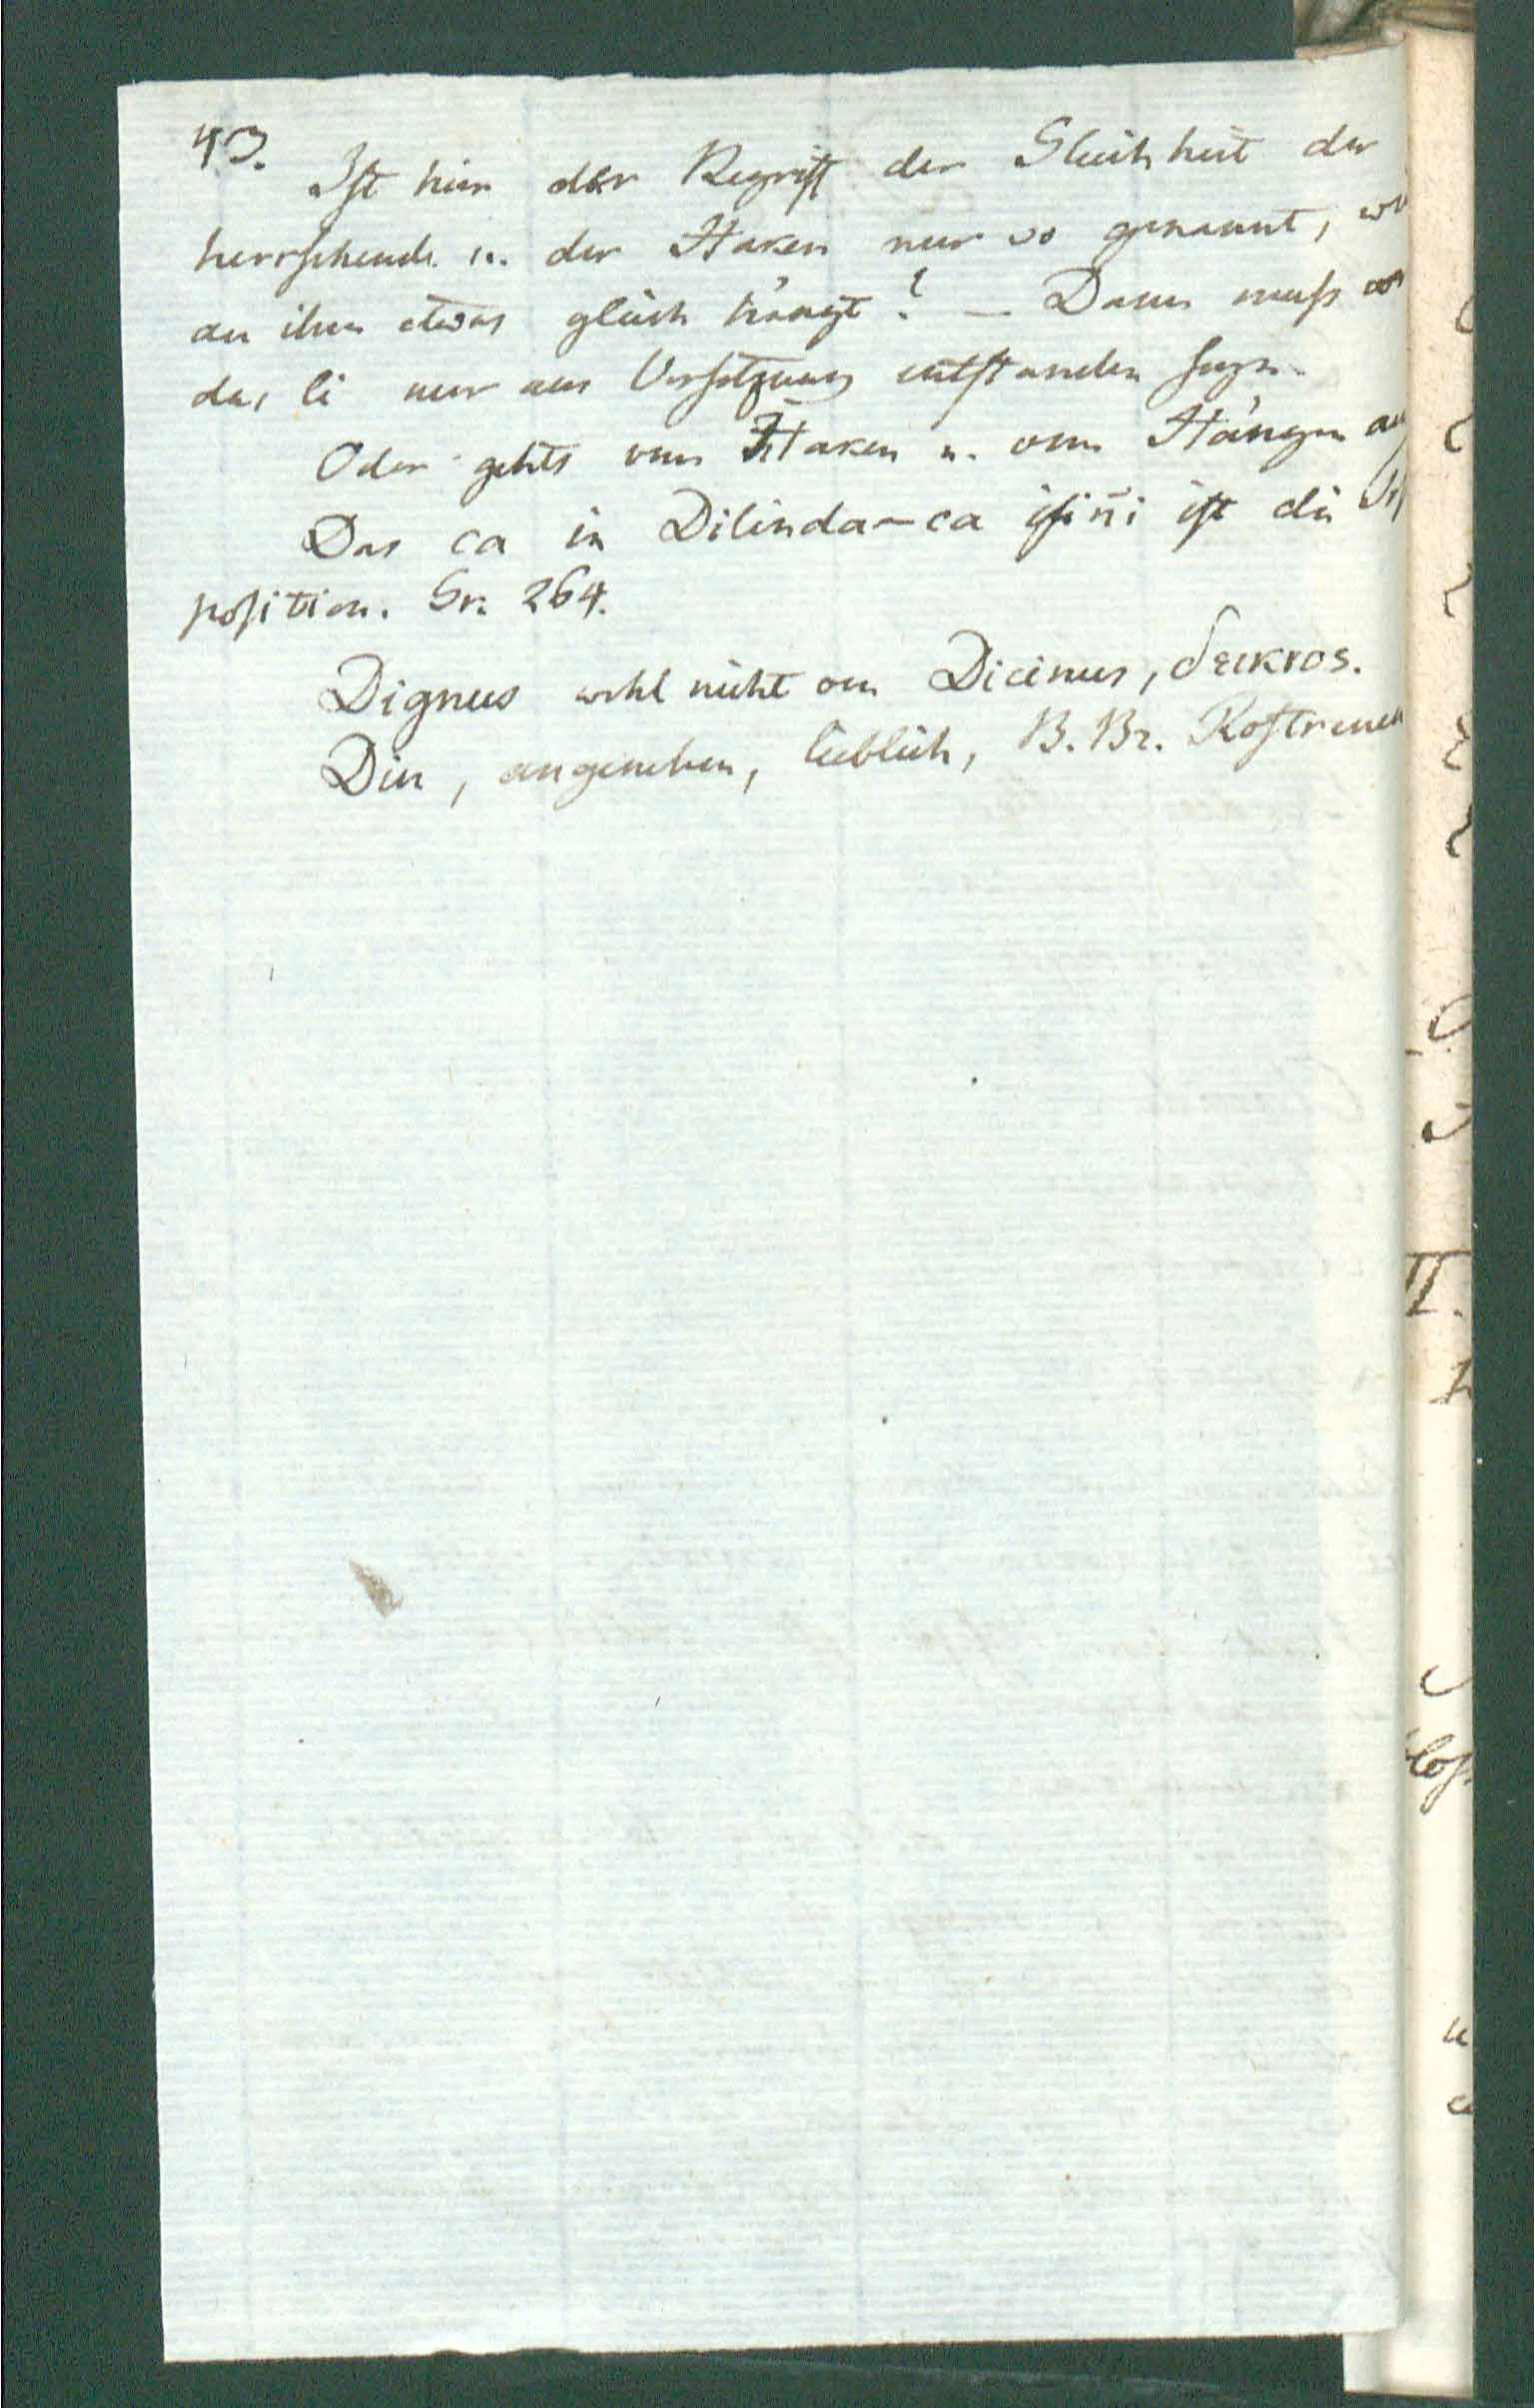 43.
Ist hier der Begriff der Gleichheit der
herrschende u. der Haken nur so genannt,
an ihm etwas gleich hängt? – Dann muß
das li nur aus Versetzung entstanden seyn.
Oder gehts vom Haken u. vom Hängen
Das ca in Dilinda-ca ist die
position. Gr. 264.
Dignus wohl nicht von Dicinus, δεικτος.
Din, angenehm, lieblich, B. Br. Rostrenen